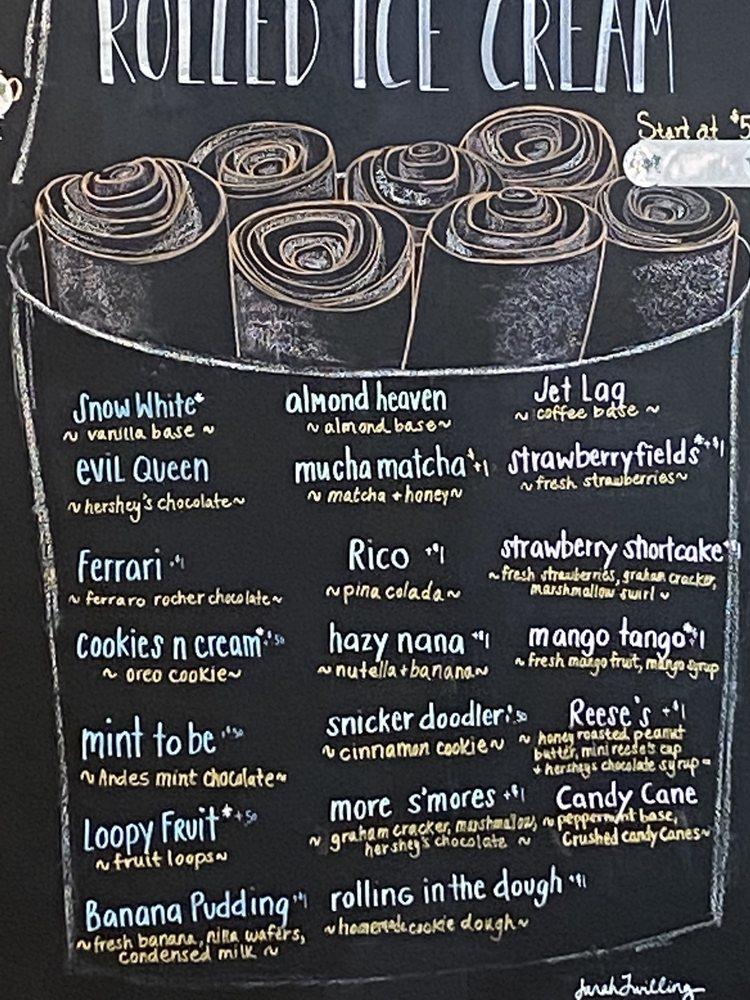 ROLLED ICE CREAM
Start at $5
Snow White*
~ vanilla base ~
evil Queen
~ hershey's chocolate ~
Ferrari +$1
~ ferraro rocher chocolate ~
cookies n cream* +.50
~ oreo cookie ~
mint to be +.50
~ Andes mint chocolate ~
Loopy Fruit* +.50
~ fruit loops ~
Banana Pudding +$1
~ fresh banana, nilla wafers,
condensed milk ~
almond heaven
~ almond base ~
mucha matcha +1
~ matcha + honey ~
Rico +$1
~ pina colada ~
hazy nana +$1
~ nutella + banana ~
snicker doodler +.50
~ cinnamon cookie ~
more s'mores +$1
~ graham cracker, marshmallow,
hershey's chocolate ~
rolling in the dough +$1
~ homemade cookie dough ~
Jet Lag
~ coffee base ~
strawberry fields* +$1
~ fresh strawberries ~
strawberry shortcake +$1
~ fresh strawberries, graham cracker,
marshmallow swirl ~
mango tango* +$1
~ fresh mango fruit, mango syrup
Reese's +$1
~ honey roasted peanut
butter, mini reese's cup
+ hersheys chocolate syrup ~
Candy Cane
~ peppermint base,
Crushed candy canes ~
Sarah Zwilling